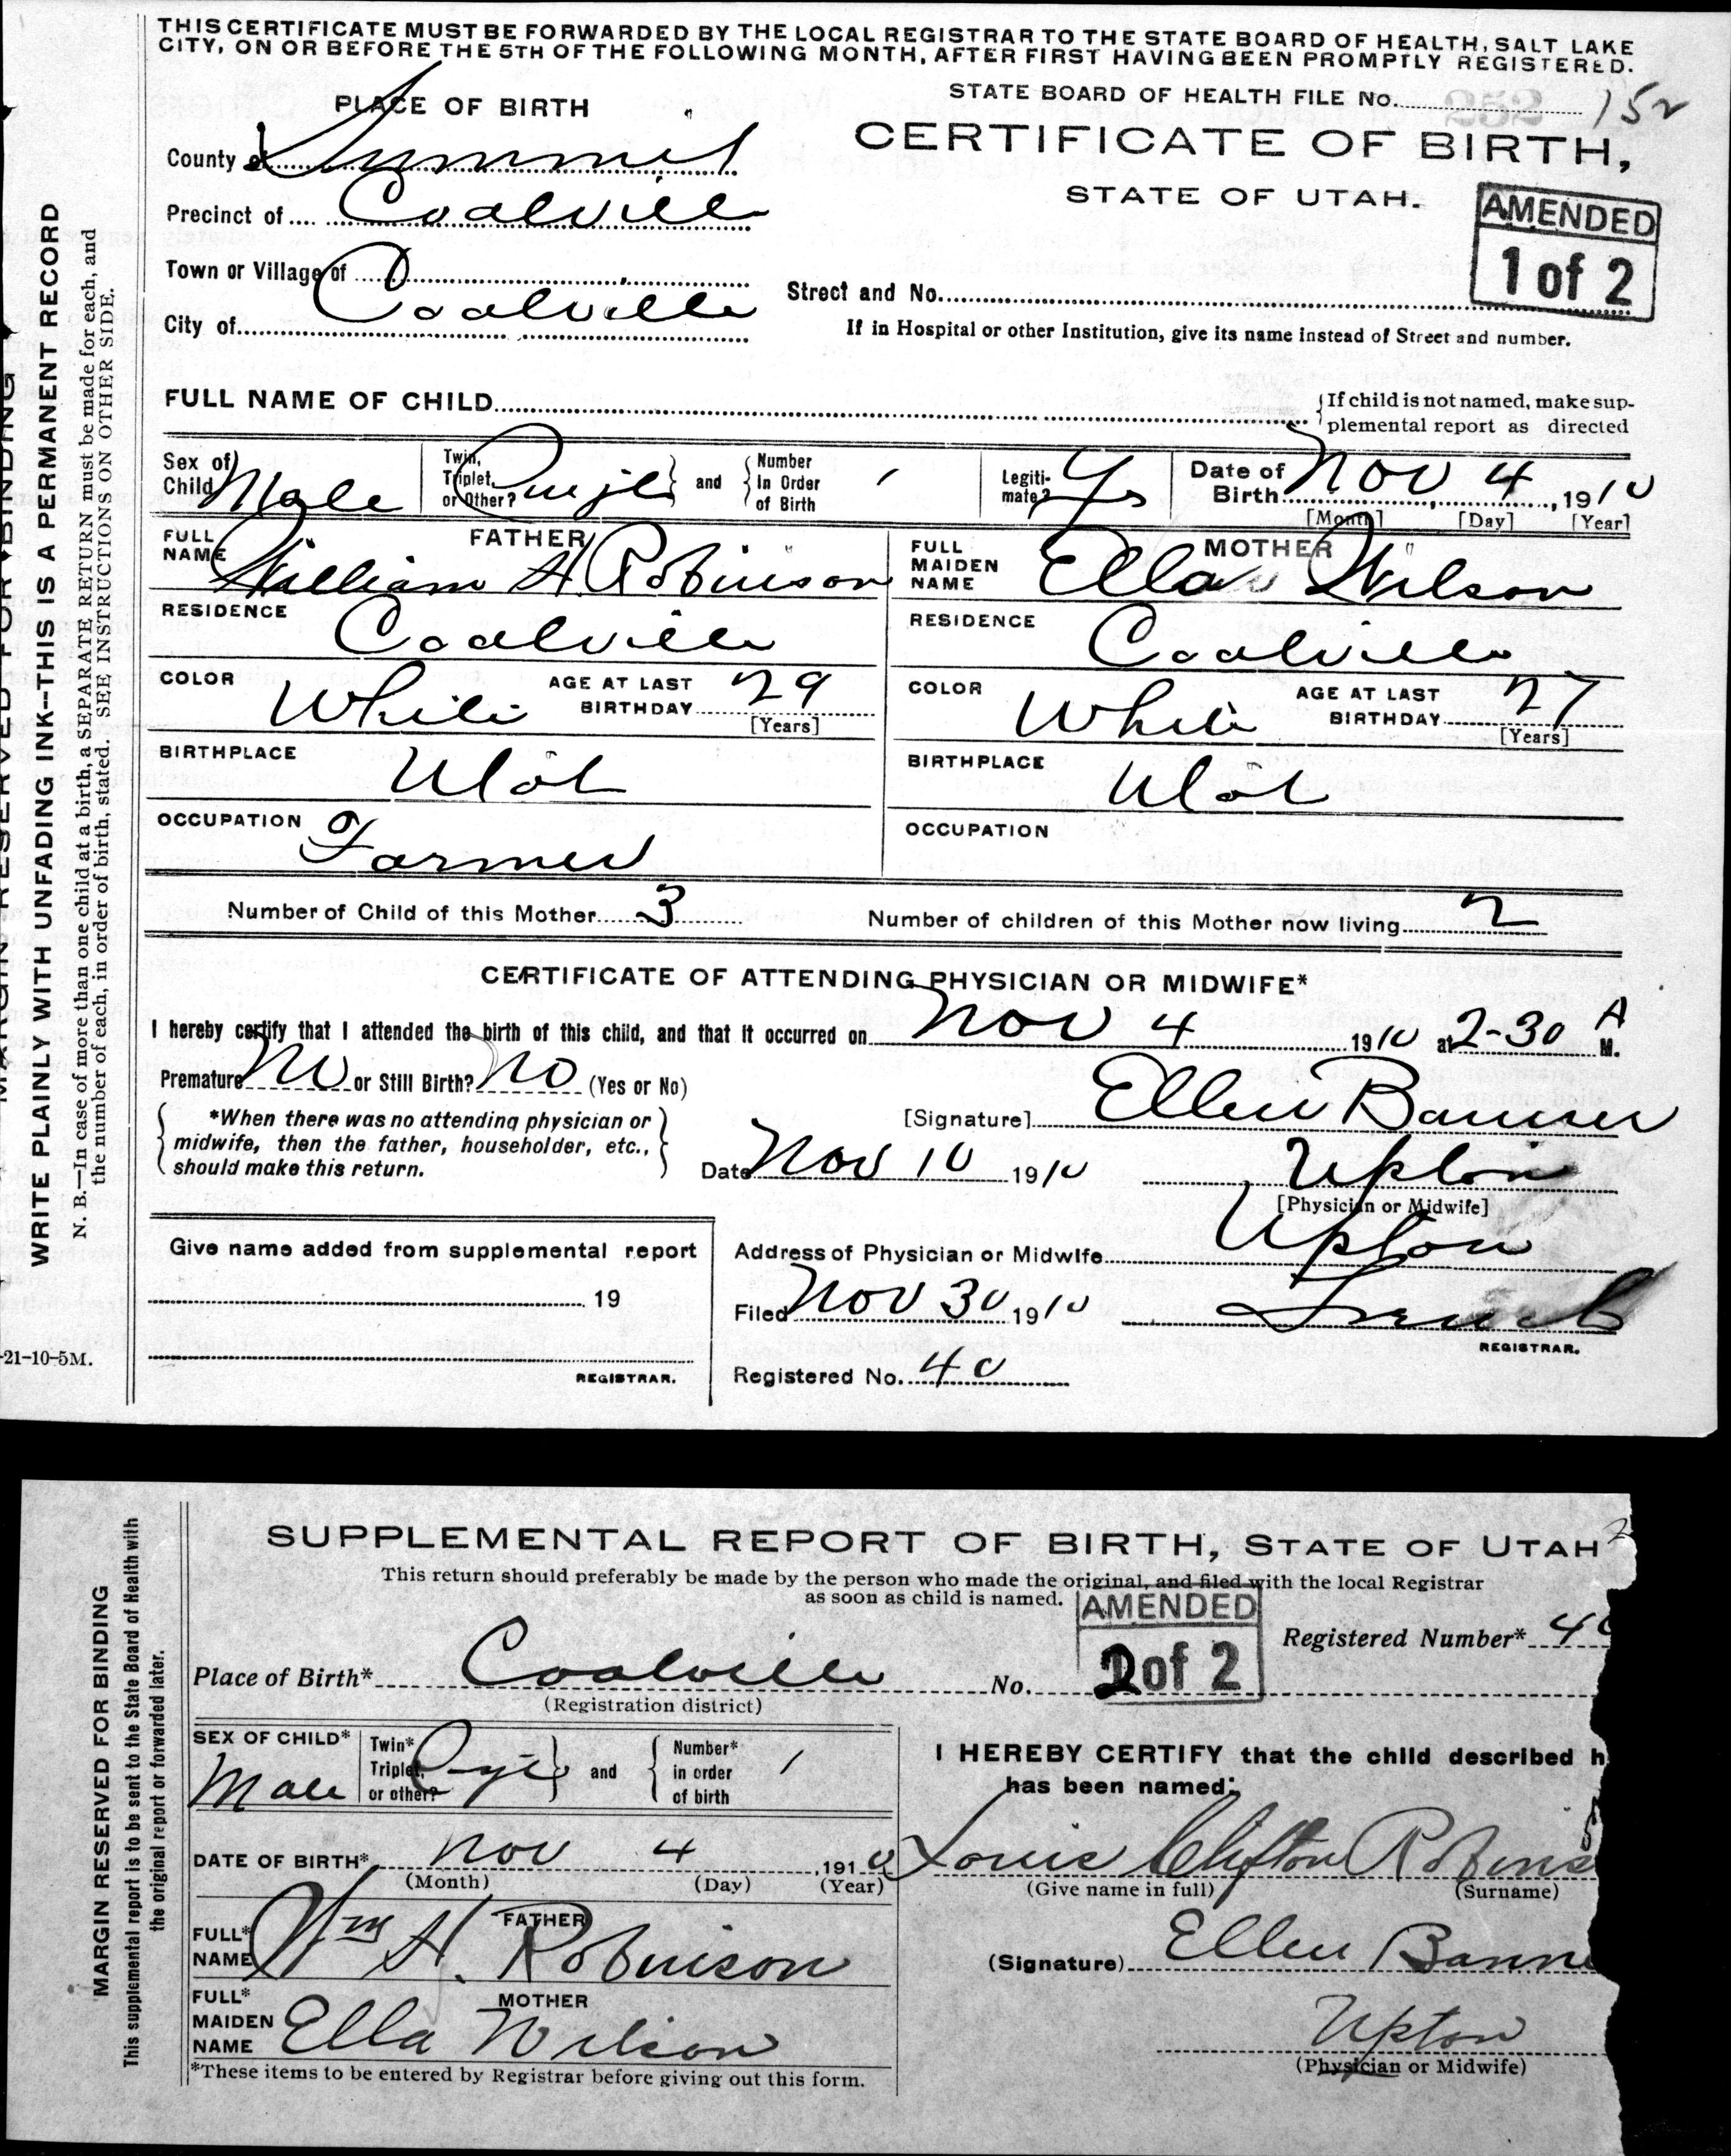 THIS CERTIFICATE MUST BE FORWARDED BY THE LOCAL REGISTRAR TO THE STATE BOARD OF HEALTH, SALT LAKE
CITY, ON OR BEFORE THE 5TH OF THE FOLLOWING MONTH, AFTER FIRST HAVING BEEN PROMPTLY REGISTERED.
PLACE OF BIRTH
STATE BOARD OF HEALTH FILE No. 152
252
CERTIFICATE OF BIRTH,
STATE OF UTAH.
AMENDED
1 of 2
County of Summit
Precinct of Coalville
Town or Village of
City of Coalville
Street and No.
If in Hospital or other Institution, give its name instead of Street and number.
FULL NAME OF CHILD
If child is not named, make sup-
plemental report as directed
Sex of Child Male
Twin, Triplet, or Other?
and Number In Order of Birth 1
Legiti-mate? Yes
Date of Birth Nov 4, 1910
[Month] [Day] [Year]
FATHER
FULL NAME William H. Robinson
MOTHER
FULL MAIDEN NAME Ella Wilson
RESIDENCE Coalville
RESIDENCE Coalville
COLOR White AGE AT LAST BIRTHDAY 29 [Years]
COLOR White AGE AT LAST BIRTHDAY 27 [Years]
BIRTHPLACE Utah
BIRTHPLACE Utah
OCCUPATION Farmer
OCCUPATION
Number of Child of this Mother 3
Number of children of this Mother now living 2
CERTIFICATE OF ATTENDING PHYSICIAN OR MIDWIFE*
I hereby certify that I attended the birth of this child, and that it occurred on Nov 4 1910 at 2-30 A M.
Premature No or Still Birth? No (Yes or No)
*When there was no attending physician or
midwife, then the father, householder, etc.,
should make this return.
[Signature] Ellen Banner
Date Nov 10 1910
Upton
[Physician or Midwife]
Give name added from supplemental report
19
REGISTRAR.
Address of Physician or Midwife Upton
Filed Nov 30 1910
REGISTRAR.
Registered No. 40
WRITE PLAINLY WITH UNFADING INK--THIS IS A PERMANENT RECORD
N. B.—In case of more than one child at a birth, a SEPARATE RETURN must be made for each, and
the number of each, in order of birth, stated. SEE INSTRUCTIONS ON OTHER SIDE.
-21-10-5M.
SUPPLEMENTAL REPORT OF BIRTH, STATE OF UTAH
This return should preferably be made by the person who made the original, and filed with the local Registrar
as soon as child is named.
AMENDED
2 of 2
Registered Number* 40
Place of Birth* Coalville No.
(Registration district)
SEX OF CHILD* Male
Twin* Triplet, or other?
and Number* in order of birth 1
I HEREBY CERTIFY that the child described h
has been named:
DATE OF BIRTH* Nov 4, 1910
(Month) (Day) (Year)
Louis Clifton Robins
(Give name in full) (Surname)
FATHER
FULL* NAME Wm H. Robinson
(Signature) Ellen Banne
MOTHER
FULL* MAIDEN NAME Ella Wilson
Upton
(Physician or Midwife)
*These items to be entered by Registrar before giving out this form.
MARGIN RESERVED FOR BINDING
This supplemental report is to be sent to the State Board of Health with
the original report or forwarded later.